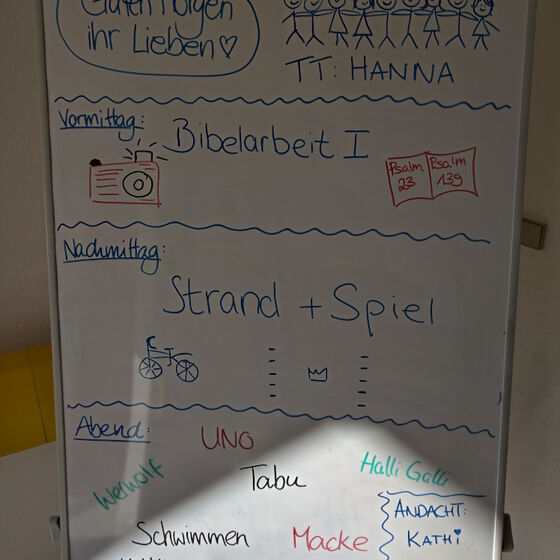 Guten Morgen
ihr Lieben
TT: HANNA
Vormittag:
Bibelarbeit I
Psalm 23
Psalm 139
Nachmittag:
Strand + Spiel
Abend:
UNO
Werwolf
Tabu
Halli Galli
Schwimmen
Macke
ANDACHT:
KATHI